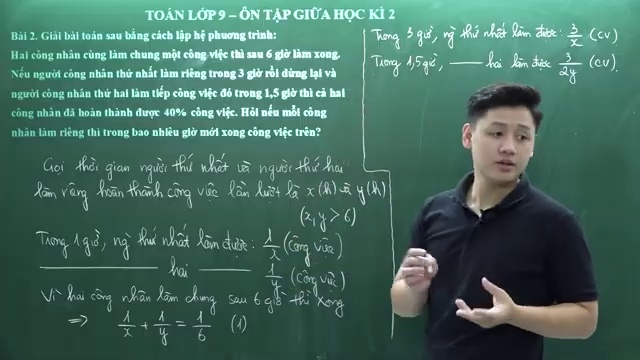 TOÁN LỚP 9 – ÔN TẬP GIỮA HỌC KÌ 2
Bài 2. Giải bài toán sau bằng cách lập hệ phương trình:
Hai công nhân cùng làm chung một công việc thì sau 6 giờ làm xong.
Nếu người công nhân thứ nhất làm riêng trong 3 giờ rồi dừng lại và
người công nhân thứ hai làm tiếp công việc đó trong 1,5 giờ thì cả hai
công nhân đã hoàn thành được 40% công việc. Hỏi nếu mỗi công
nhân làm riêng thì trong bao nhiêu giờ mới xong công việc trên?
Gọi thời gian người thứ nhất và người thứ hai
làm riêng hoàn thành công việc lần lượt là x(h) và y(h)
(x,y > 6)
Trong 1 giờ, ng thứ nhất làm được: 1/x (công việc)
—— hai —— 1/y (công việc)
Vì hai công nhân làm chung sau 6 giờ thì xong
⇒ 1/x + 1/y = 1/6 (1)
Trong 3 giờ, ng thứ nhất làm được: 3/x (CV)
Trong 1,5 giờ, —— hai làm được 3/2y (CV).